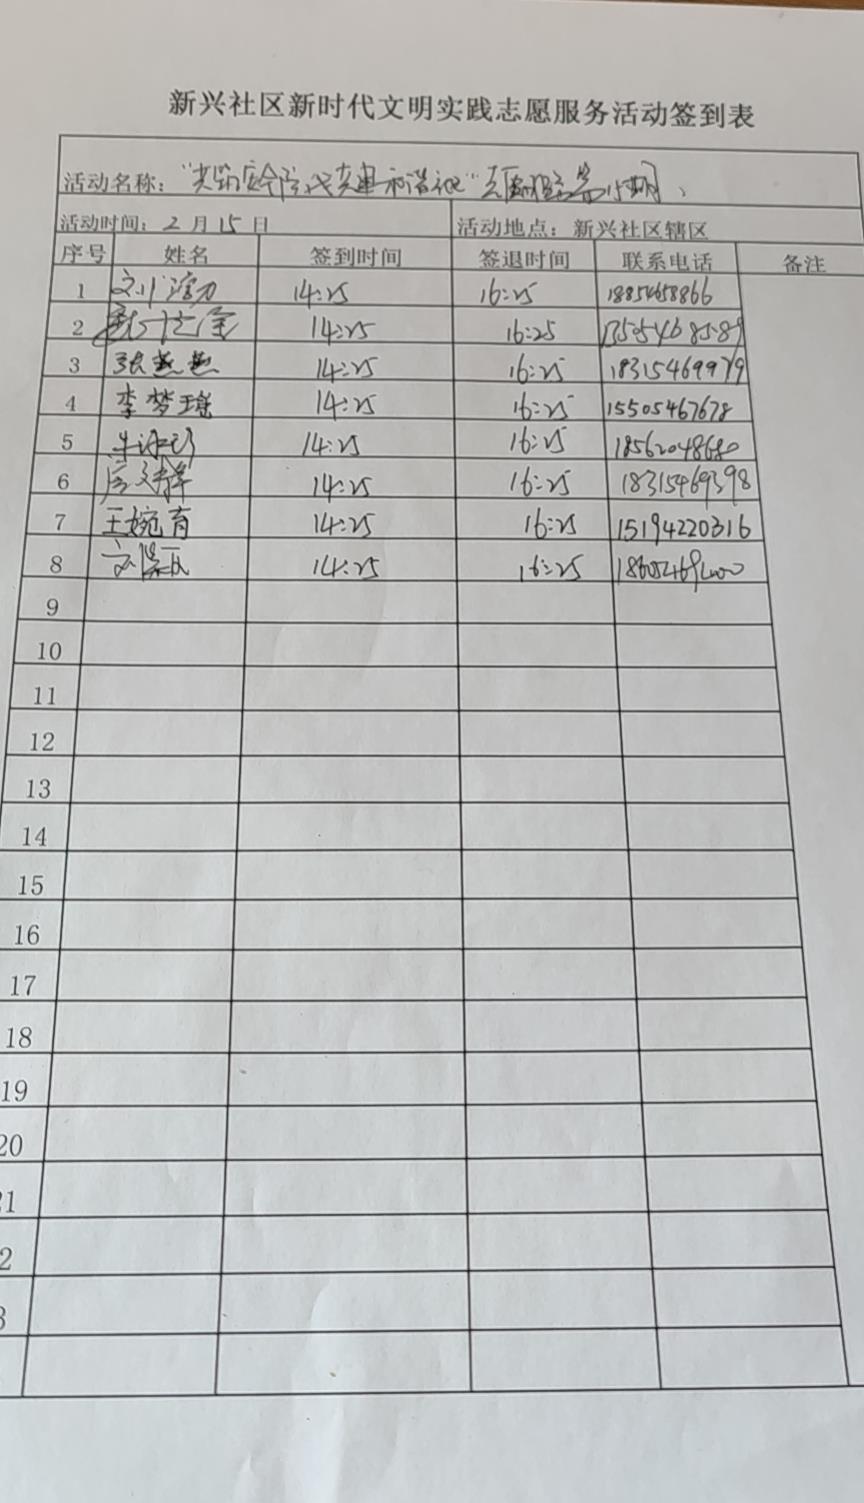 新兴社区新时代文明实践志愿服务活动签到表
活动名称：
活动时间：2月15日 活动地点：新兴社区辖区
序号 姓名 签到时间 签退时间 联系电话 备注
1 14:25 16:25 18854658866
2 14:25 16:25
3 张燕燕 14:25 16:25 18315469979
4 李梦瑶 14:25 16:25 15505467678
5 14:25 16:25 18562048680
6 14:25 16:25 18315469398
7 王婉育 14:25 16:25 15194220316
8 14:25 16:25
9
10
11
12
13
14
15
16
17
18
19
20
21
2
3